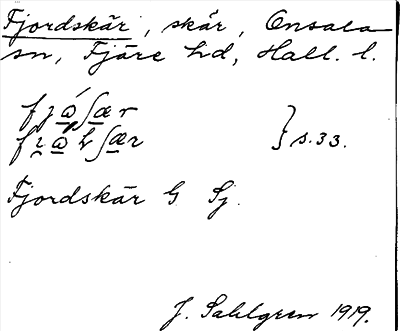 Fjordskär, skär, Onsala
sn, Fjäre hd, Hall. l.
} s. 33.
Fjordskär G Sj.
J. Sahlgren 1919.